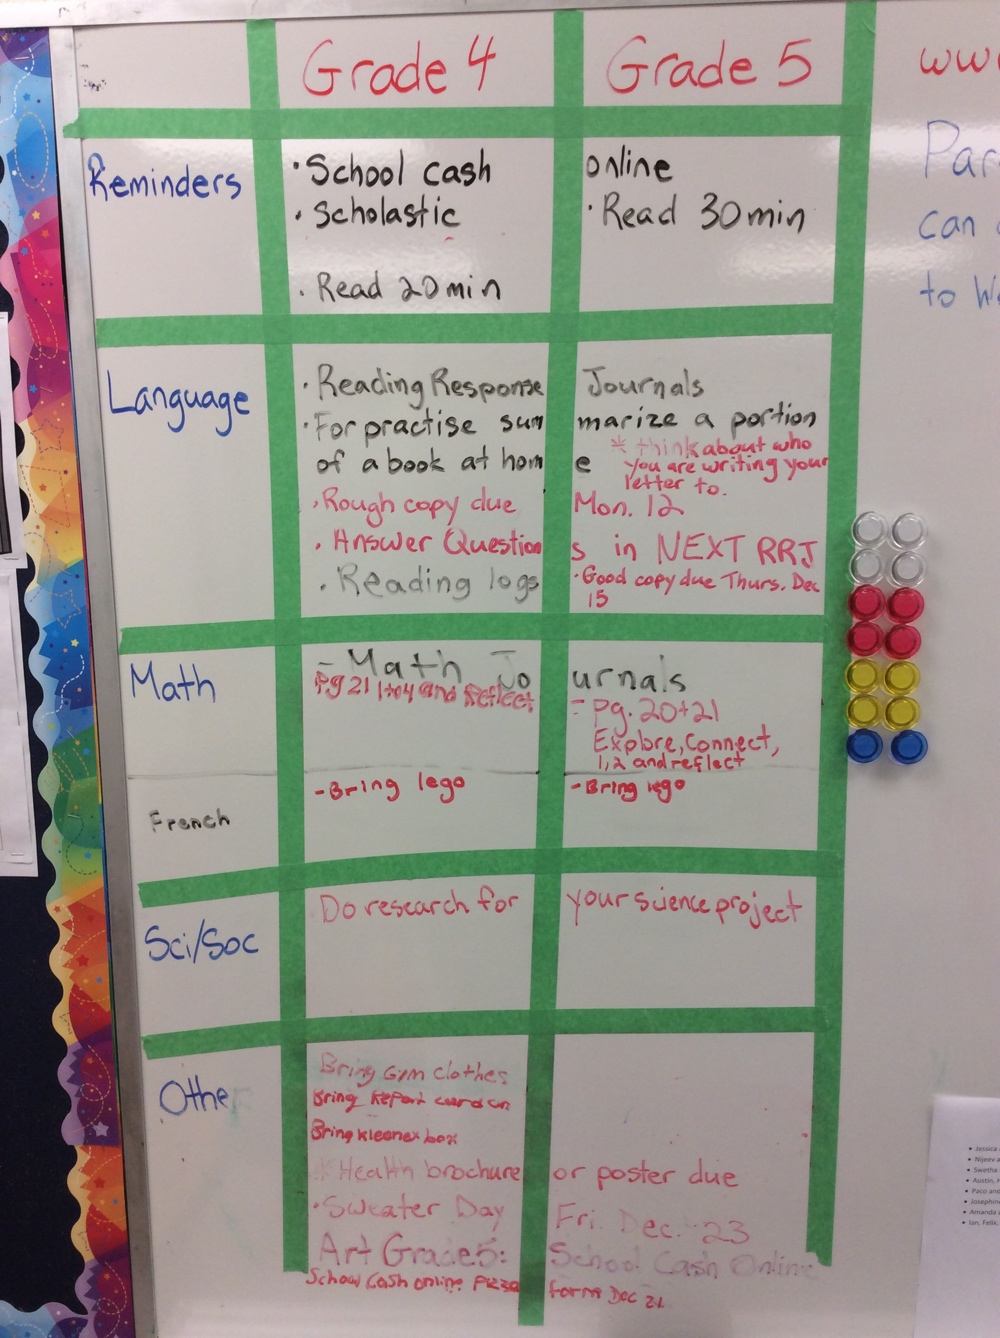 Grade 4 Grade 5 www
Reminders
· School cash online
· Scholastic · Read 30 min
· Read 20 min
Par
can
to W
Language
· Reading Response Journals
· For practise summarize a portion
of a book at home
* think about who
you are writing your
letter to.
· Rough copy due Mon. 12
· Answer Questions in NEXT RRJ
· Reading logs
· Good copy due Thurs. Dec
15
Math
- Math Journals
pg 21 1 to 4 and Reflect
- pg. 20+21
Explore, Connect,
1,2 and reflect
French
- Bring lego - Bring lego
Sci/Soc
Do research for your science project
Other
Bring Gym clothes
Bring Report card
Bring kleenex box
Health brochure or poster due
· Sweater Day Fri. Dec. 23
Art Grade 5: School Cash Online
School Cash online Pizza form Dec 21
• Jessica
• Nijeev a
• Swetha
• Austin,
• Paco and
• Josephine
• Amanda a
• Ian, Felix,